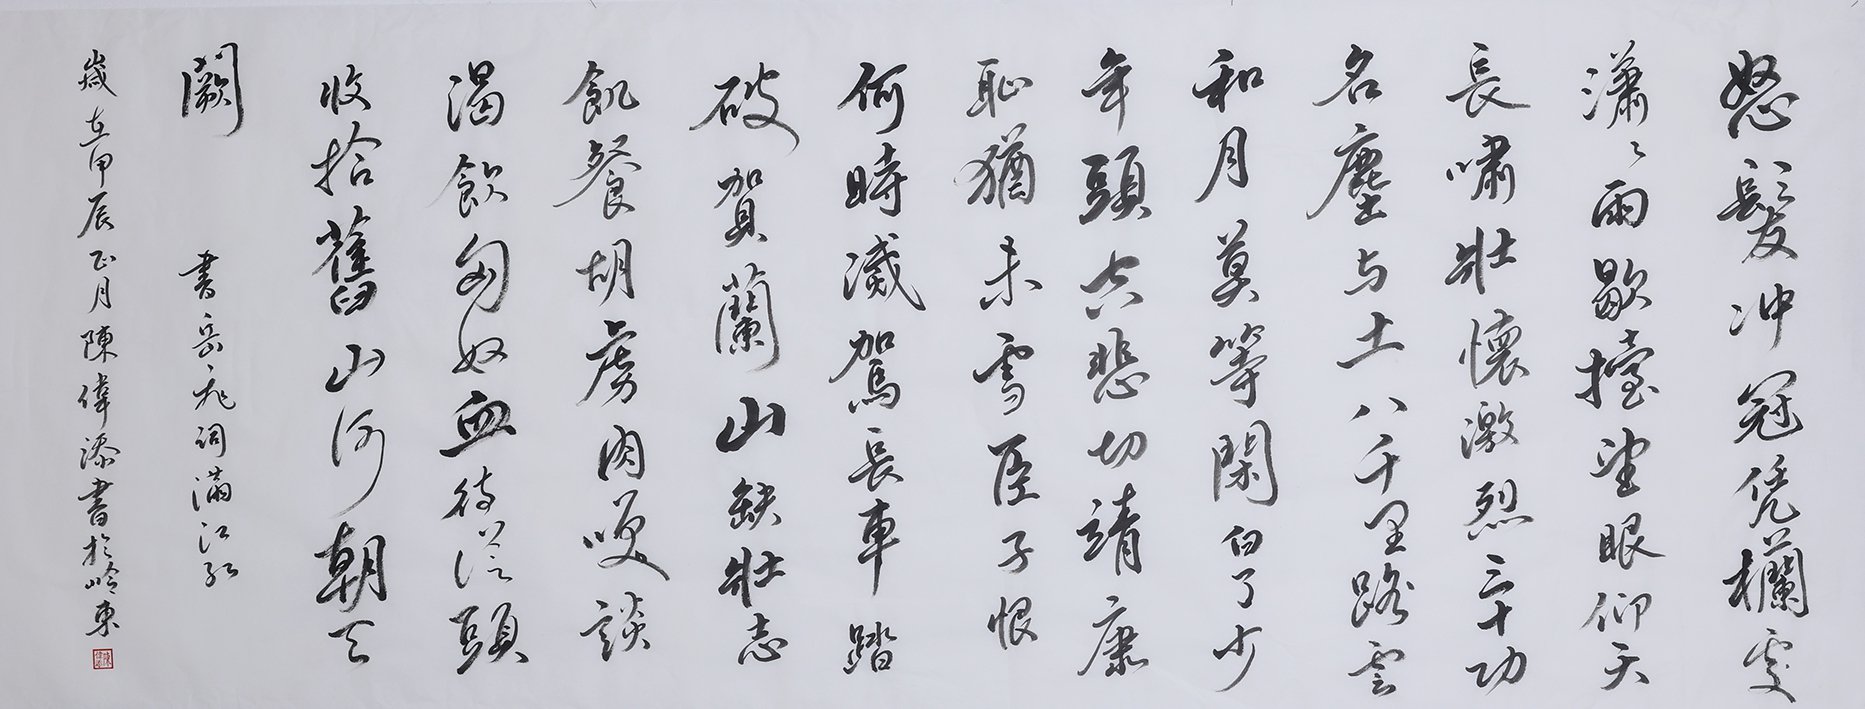 怒髮冲冠凭欄處
瀟々雨歇擡望眼仰天
長嘯壯懷激烈三十功
名塵与土八千里路雲
和月莫等閑白了少
年頭空悲切靖康
恥猶未雪臣子恨
何時滅駕長車踏
破賀蘭山缺壯志
飢餐胡虜肉哽談
渴飲匈奴血待從頭
收拾舊山河朝天
闕 書岳飛詞滿江紅
歲在甲辰正月陳偉添書於岭東